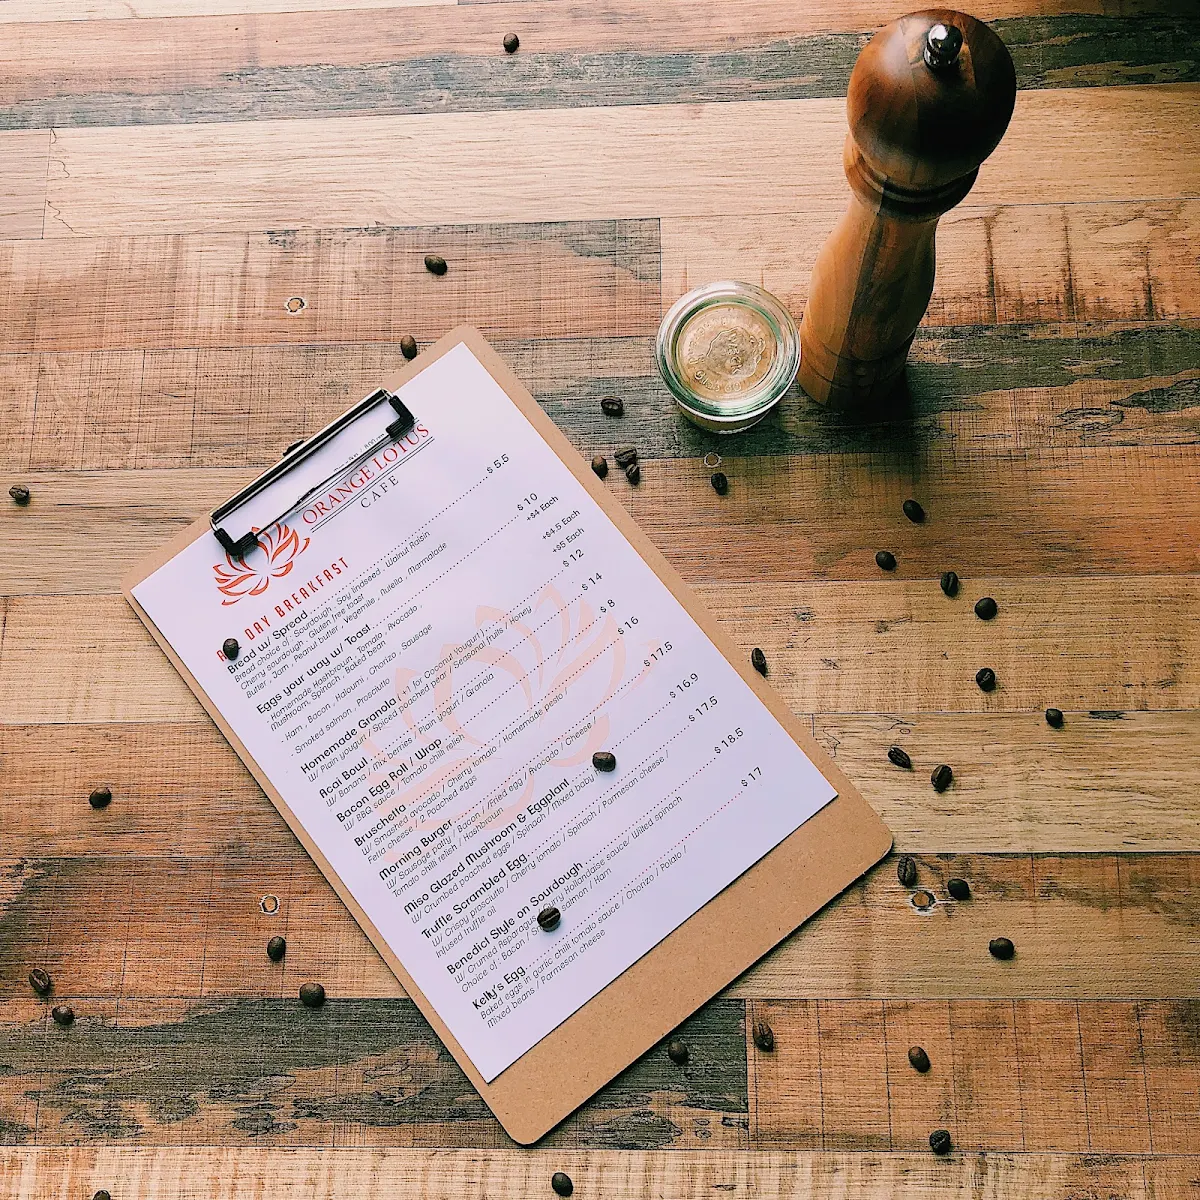 ORANGE LOTUS
CAFE
DAY BREAKFAST
Bread w/ Spread $ 5.5
Bread choice of: Sourdough, Soy linseed, Walnut Raisin
Cherry sourdough, Gluten free toast
Butter, Jam, Peanut butter, Vegemite, Nutella, Marmalade
Eggs your way w/ Toast $ 10
Homemade Hashbroun, Tomato, Avocado,
Mushroom, Spinach, Baked bean +$4 Each
Ham, Bacon, Haloumi, Chorizo, Sausage +$4.5 Each
Smoked salmon, Prosciutto +$5 Each
Homemade Granola (+1 for Coconut Yougurt) $ 12
W/ Plain yougurt / Spiced poached pear / Seasonal fruits / Honey
Acai Bowl $ 14
W/ Banana / Mix berries / Plain yogurt / Granola
Bacon Egg Roll / Wrap $ 8
W/ BBQ sauce / Tomato chilli relish
Bruschetta $ 16
W/ Smashed avocado / Cherry tomato / Homemade pesto /
Fetta cheese / 2 Poached eggs
Morning Burger $ 17.5
W/ Sausage patty / Bacon / Fried egg / Avocado / Cheese /
Tomato chilli relish / Hashbrown
Miso Glazed Mushroom & Eggplant $ 16.9
W/ Crumbed poached eggs / Spinach / Mixed baby
Truffle Scrambled Egg $ 17.5
W/ Crispy prosciutto / Cherry tomato / Spinach / Parmesan cheese /
Infused truffle oil
Benedict Style on Sourdough $ 18.5
W/ Crumed Asparagus / Hollandaise sauce / Wilted spinach
Choice of: Bacon / salmon / Ham
Kelly's Egg $ 17
Baked eggs in garlic chilli tomato sauce / Chorizo / Potato /
Mixed beans / Parmesan cheese